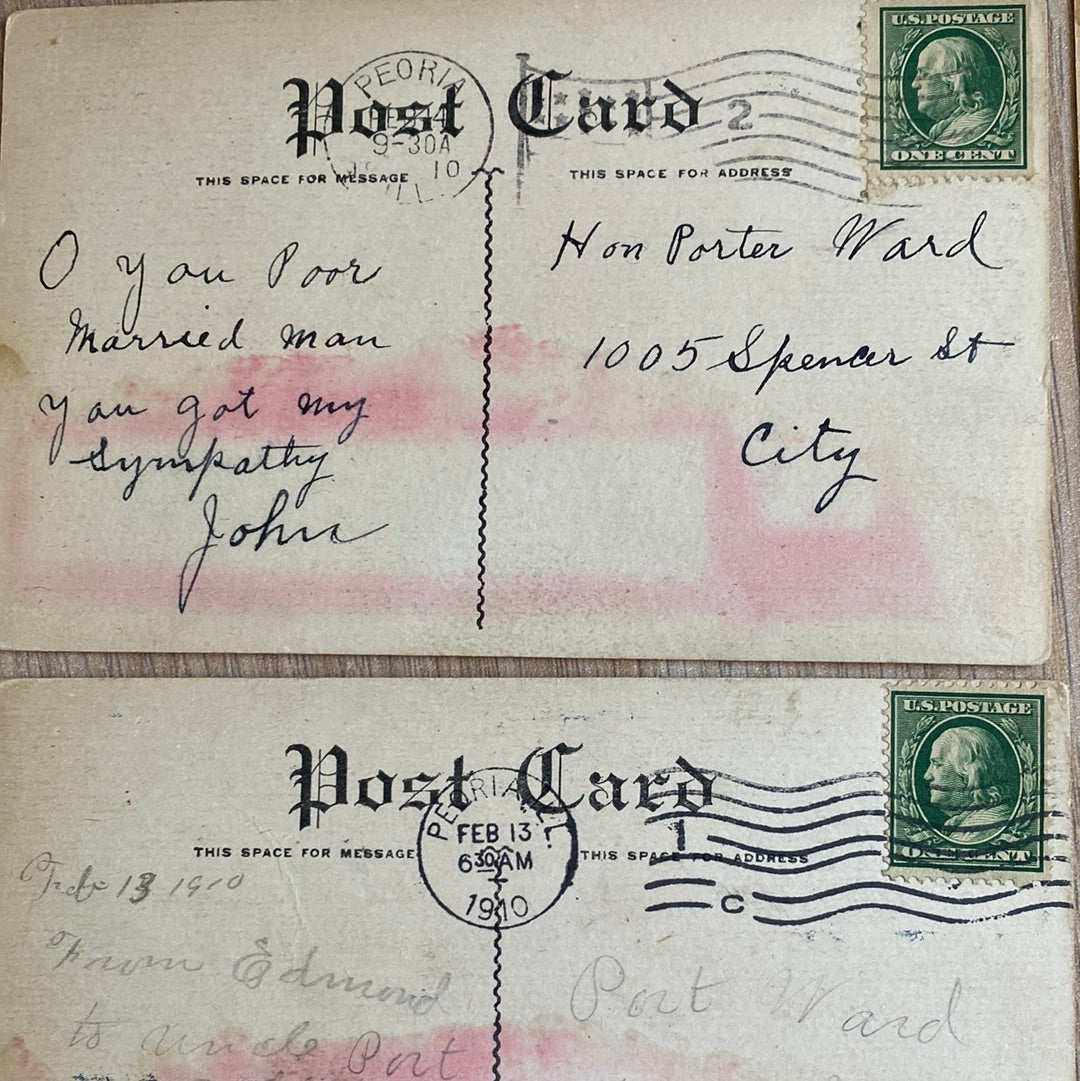 Post Card
PEORIA
9-30A
10
ILL.
2
U.S. POSTAGE
ONE CENT
THIS SPACE FOR MESSAGE
THIS SPACE FOR ADDRESS
O you Poor
Married man
you got my
Sympathy
John
Hon Porter Ward
1005 Spencer St
City
Post Card
PEORIA, ILL.
FEB 13
6 30 AM
1910
1
C
U.S. POSTAGE
ONE CENT
THIS SPACE FOR MESSAGE
THIS SPACE FOR ADDRESS
Feb 13 1910
From Edmond
to Uncle Port
Port Ward